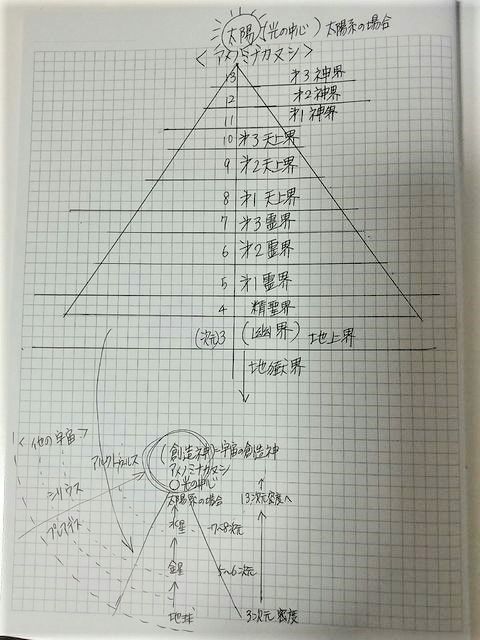 太陽 (光の中心) 太陽系の場合
<アメノミナカヌシ>
13 才3神界
12 才2神界
11 才1神界
10 才3天上界
9 才2天上界
8 才1天上界
7 才3霊界
6 才2霊界
5 才1霊界
4 精霊界
(次元)3 (幽界) 地上界
地獄界
<他の宇宙>
アルクトゥルス
シリウス
プレアデス
(創造神)=宇宙の創造神
アメノミナカヌシ
○光の中心
太陽系の場合 13次元密度へ
水星 7~8次元
金星 5~6次元
地球 3次元密度